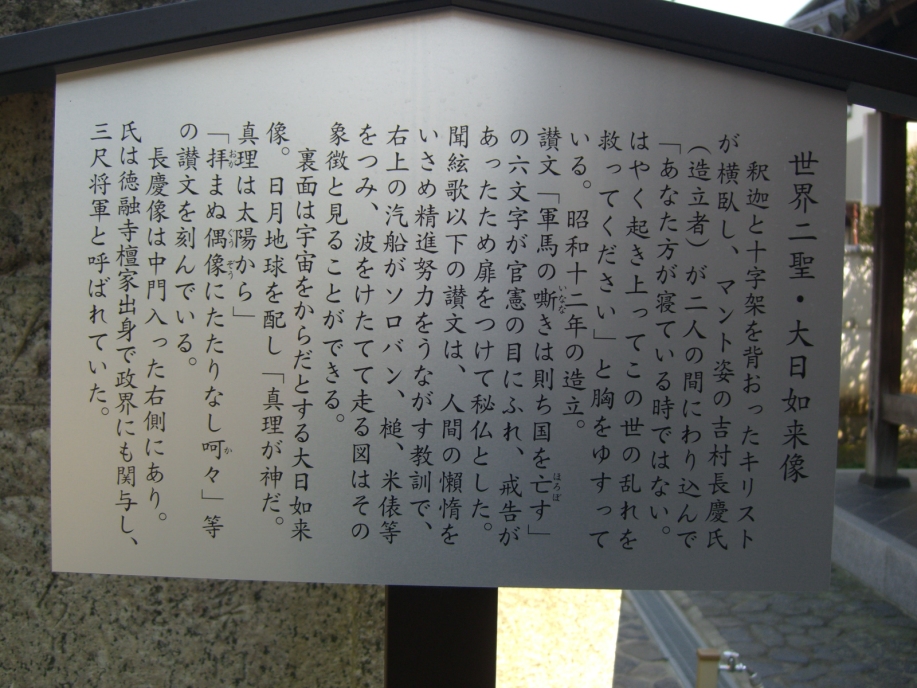 世界二聖・大日如来像
釈迦と十字架を背おったキリスト
が横臥し、マント姿の吉村長慶氏
（造立者）が二人の間にわり込んで
「あなた方が寝ている時ではない。
はやく起き上ってこの世の乱れを
救ってください」と胸をゆすって
いる。昭和十二年の造立。
讃文「軍馬の嘶きは則ち国を亡す」
の六文字が官憲の目にふれ、戒告が
あったため扉をつけて秘仏とした。
聞絃歌以下の讃文は、人間の懶惰を
いさめ精進努力をうながす教訓で、
右上の汽船がソロバン、槌、米俵等
をつみ、波をけたてて走る図はその
象徴と見ることができる。
裏面は宇宙をからだとする大日如来
像。日月地球を配し「真理が神だ。
真理は太陽から」
「拝まぬ偶像にたたりなし呵々」等
の讃文を刻んでいる。
長慶像は中門入った右側にあり。
氏は徳融寺檀家出身で政界にも関与し、
三尺将軍と呼ばれていた。